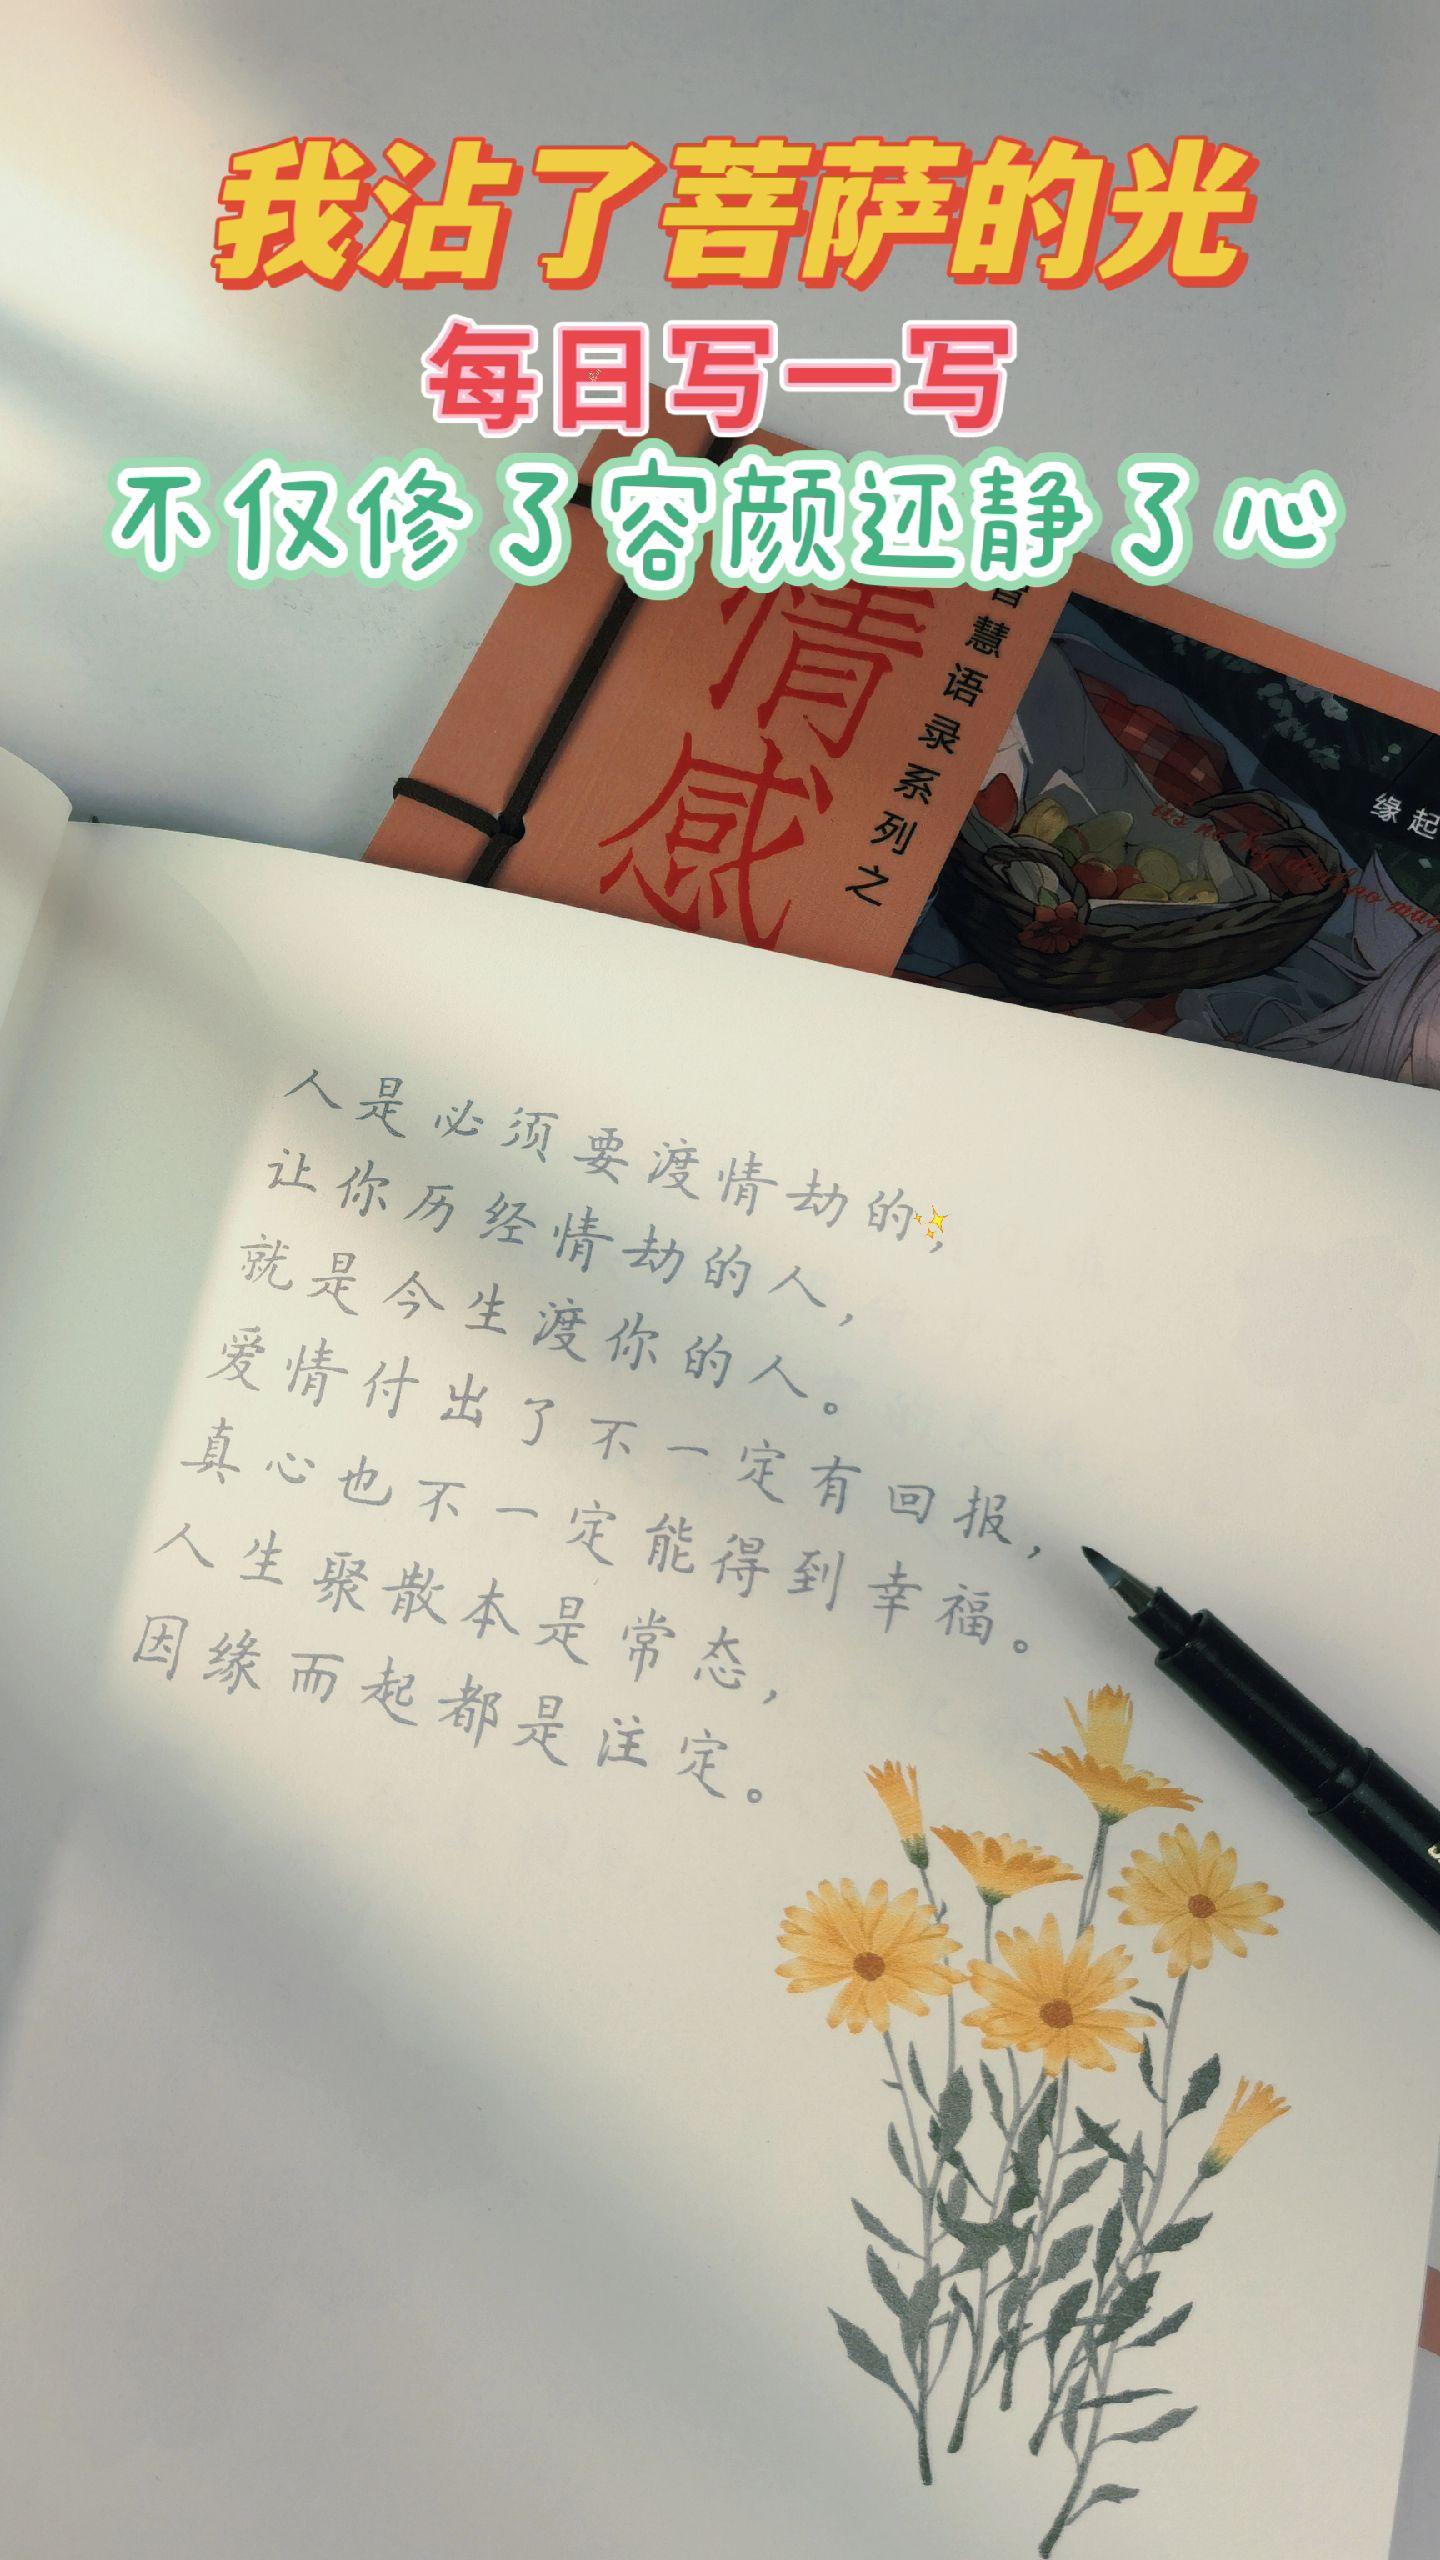 我沾了菩萨的光
每日写一写
不仅修了容颜还静了心
情感
智慧语录系列之
缘起
人是必须要渡情劫的，
让你历经情劫的人，
就是今生渡你的人。
爱情付出了不一定有回报，
真心也不一定能得到幸福。
人生聚散本是常态，
因缘而起都是注定。